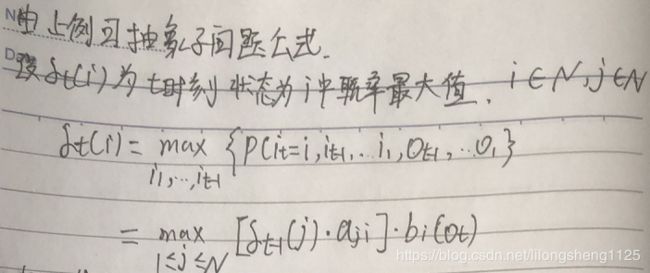 由上例可抽象子问题公式.
设 δt(i) 为 t时刻 状态为 i中 概率最大值. i∈N, j∈N
δt(i) = max {P(it=i, it-1, ... i1, Ot-1, ... O1}
i1, ..., it-1
= max [δt-1(j)·aji]·bi(ot)
1≤j≤N
https://blog.csdn.net/lilongsheng1125